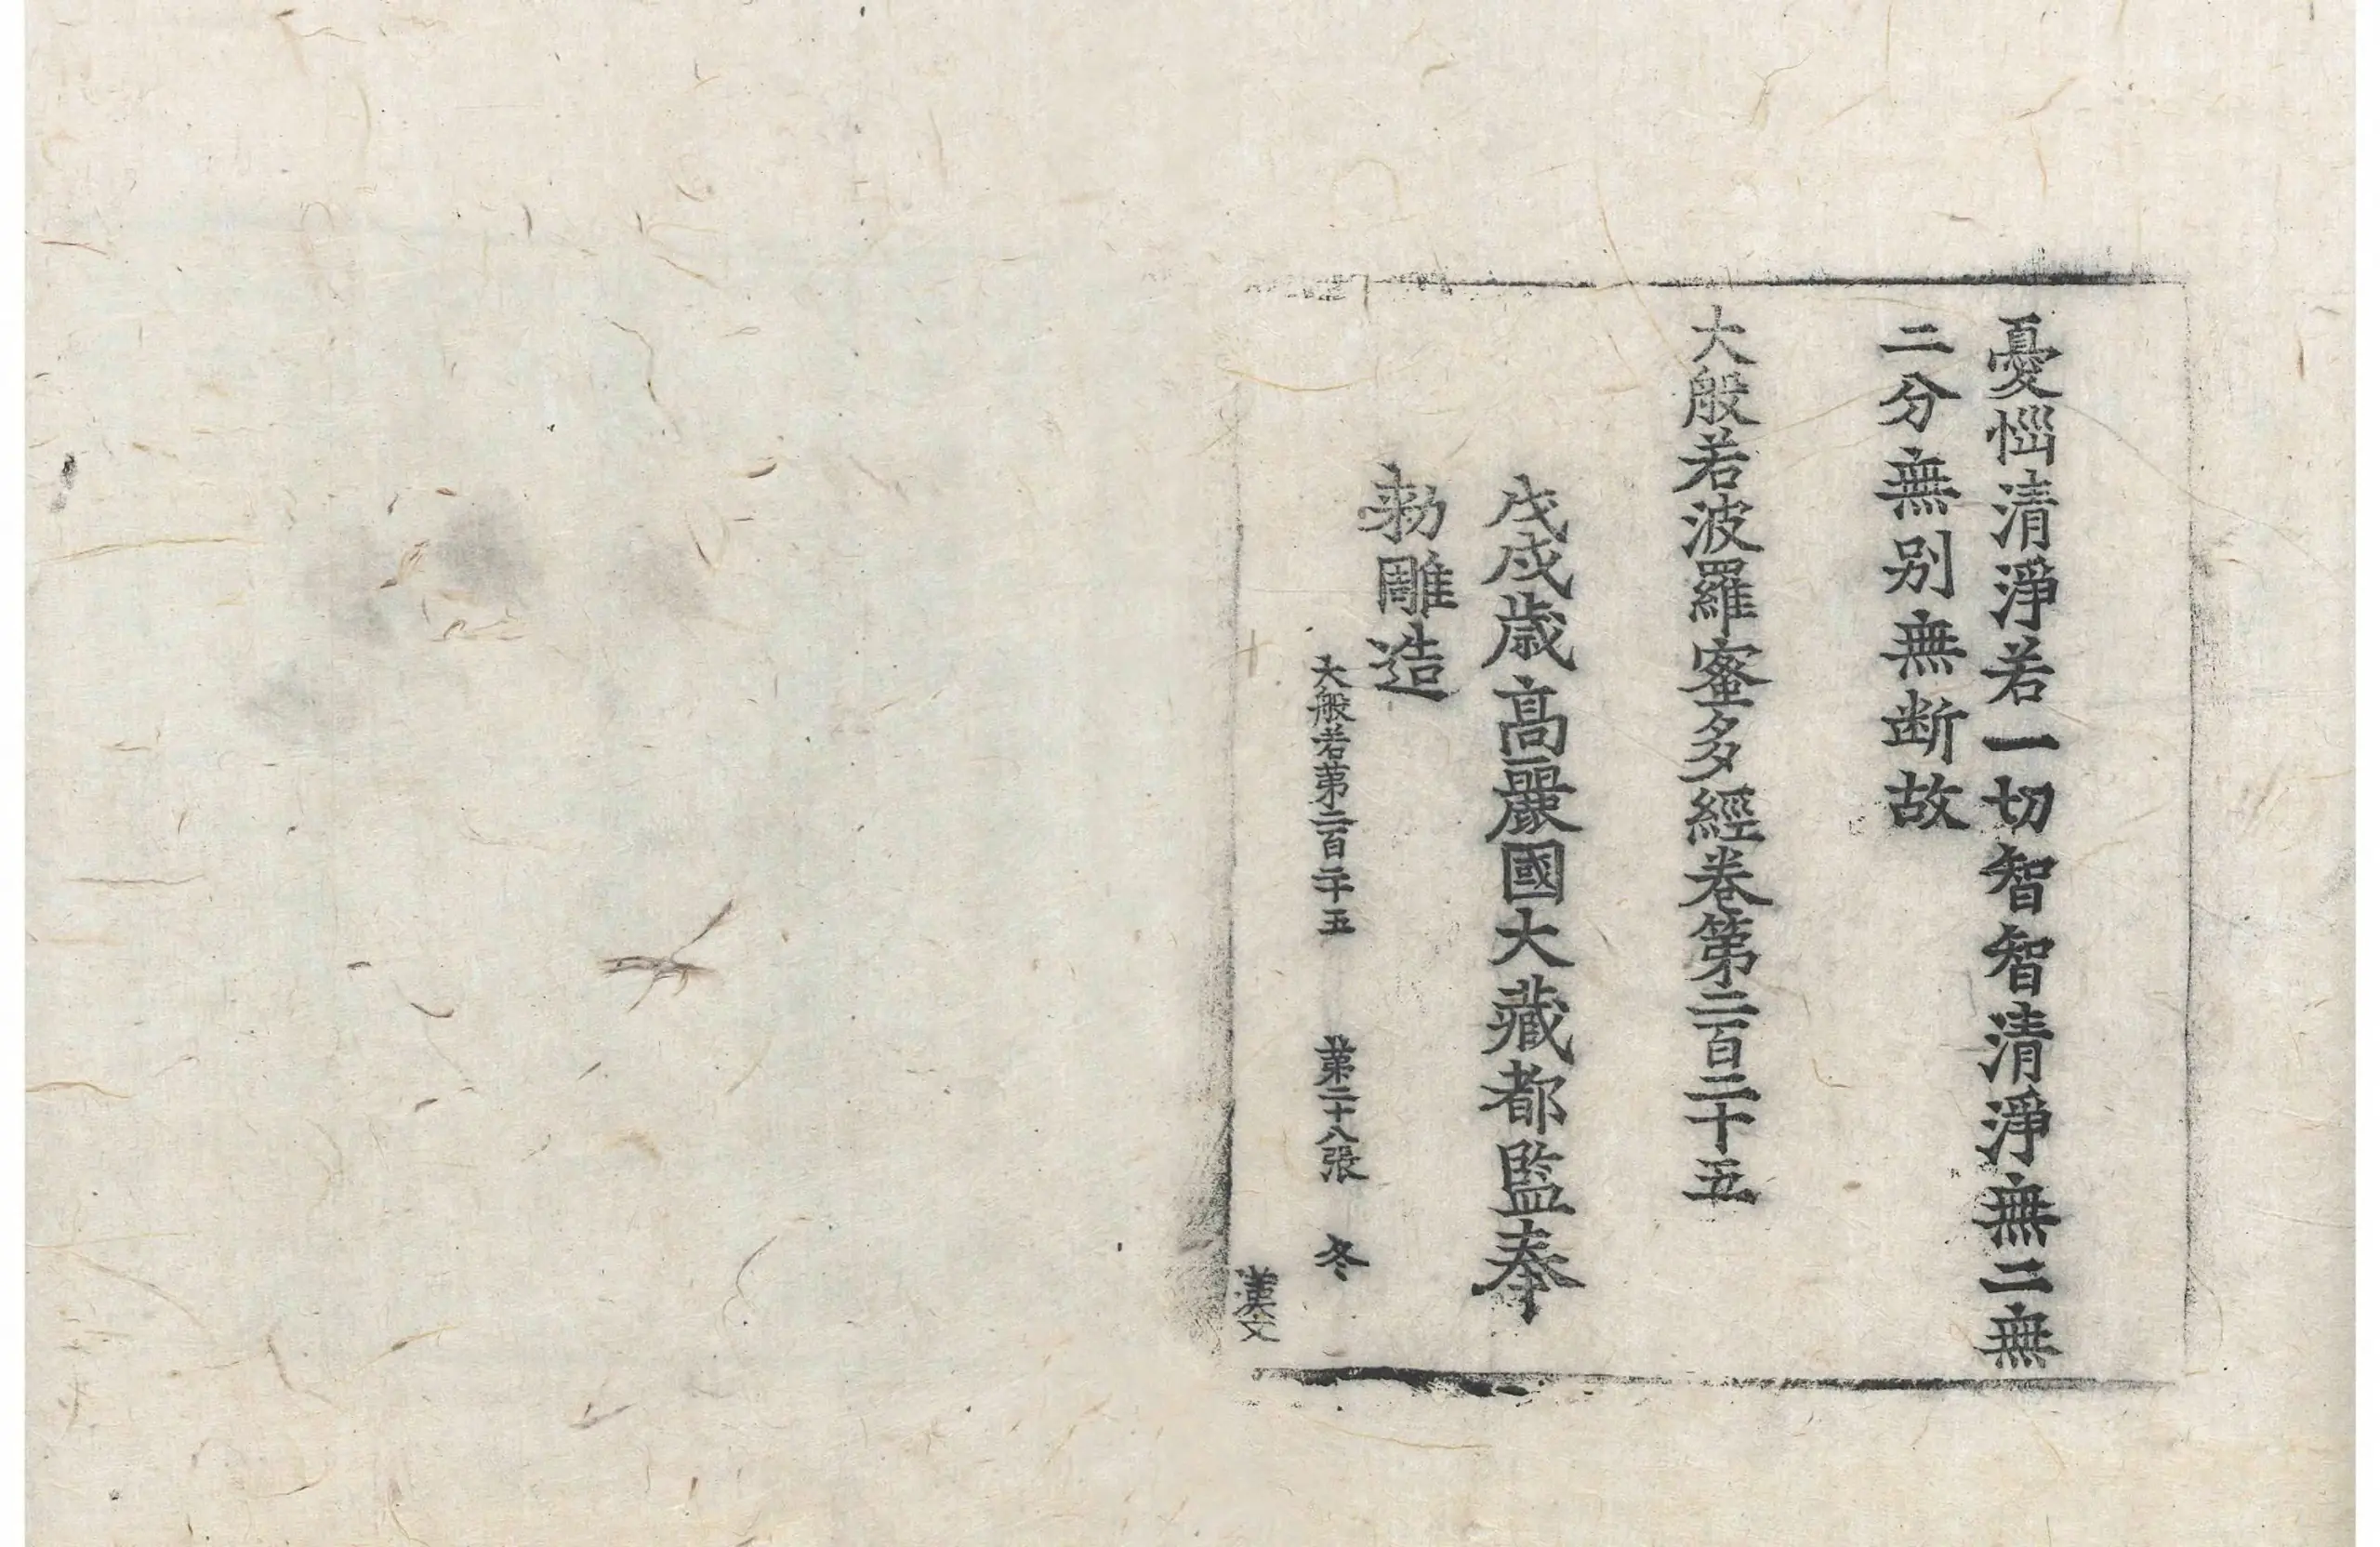 憂惱清淨若一切智智清淨無二無
二分無別無断故
大般若波羅蜜多經卷第二百二十五
戊戌歳高麗國大藏都監奉
勑雕造
大般若第二百二十五 第二十八張 冬
漢文